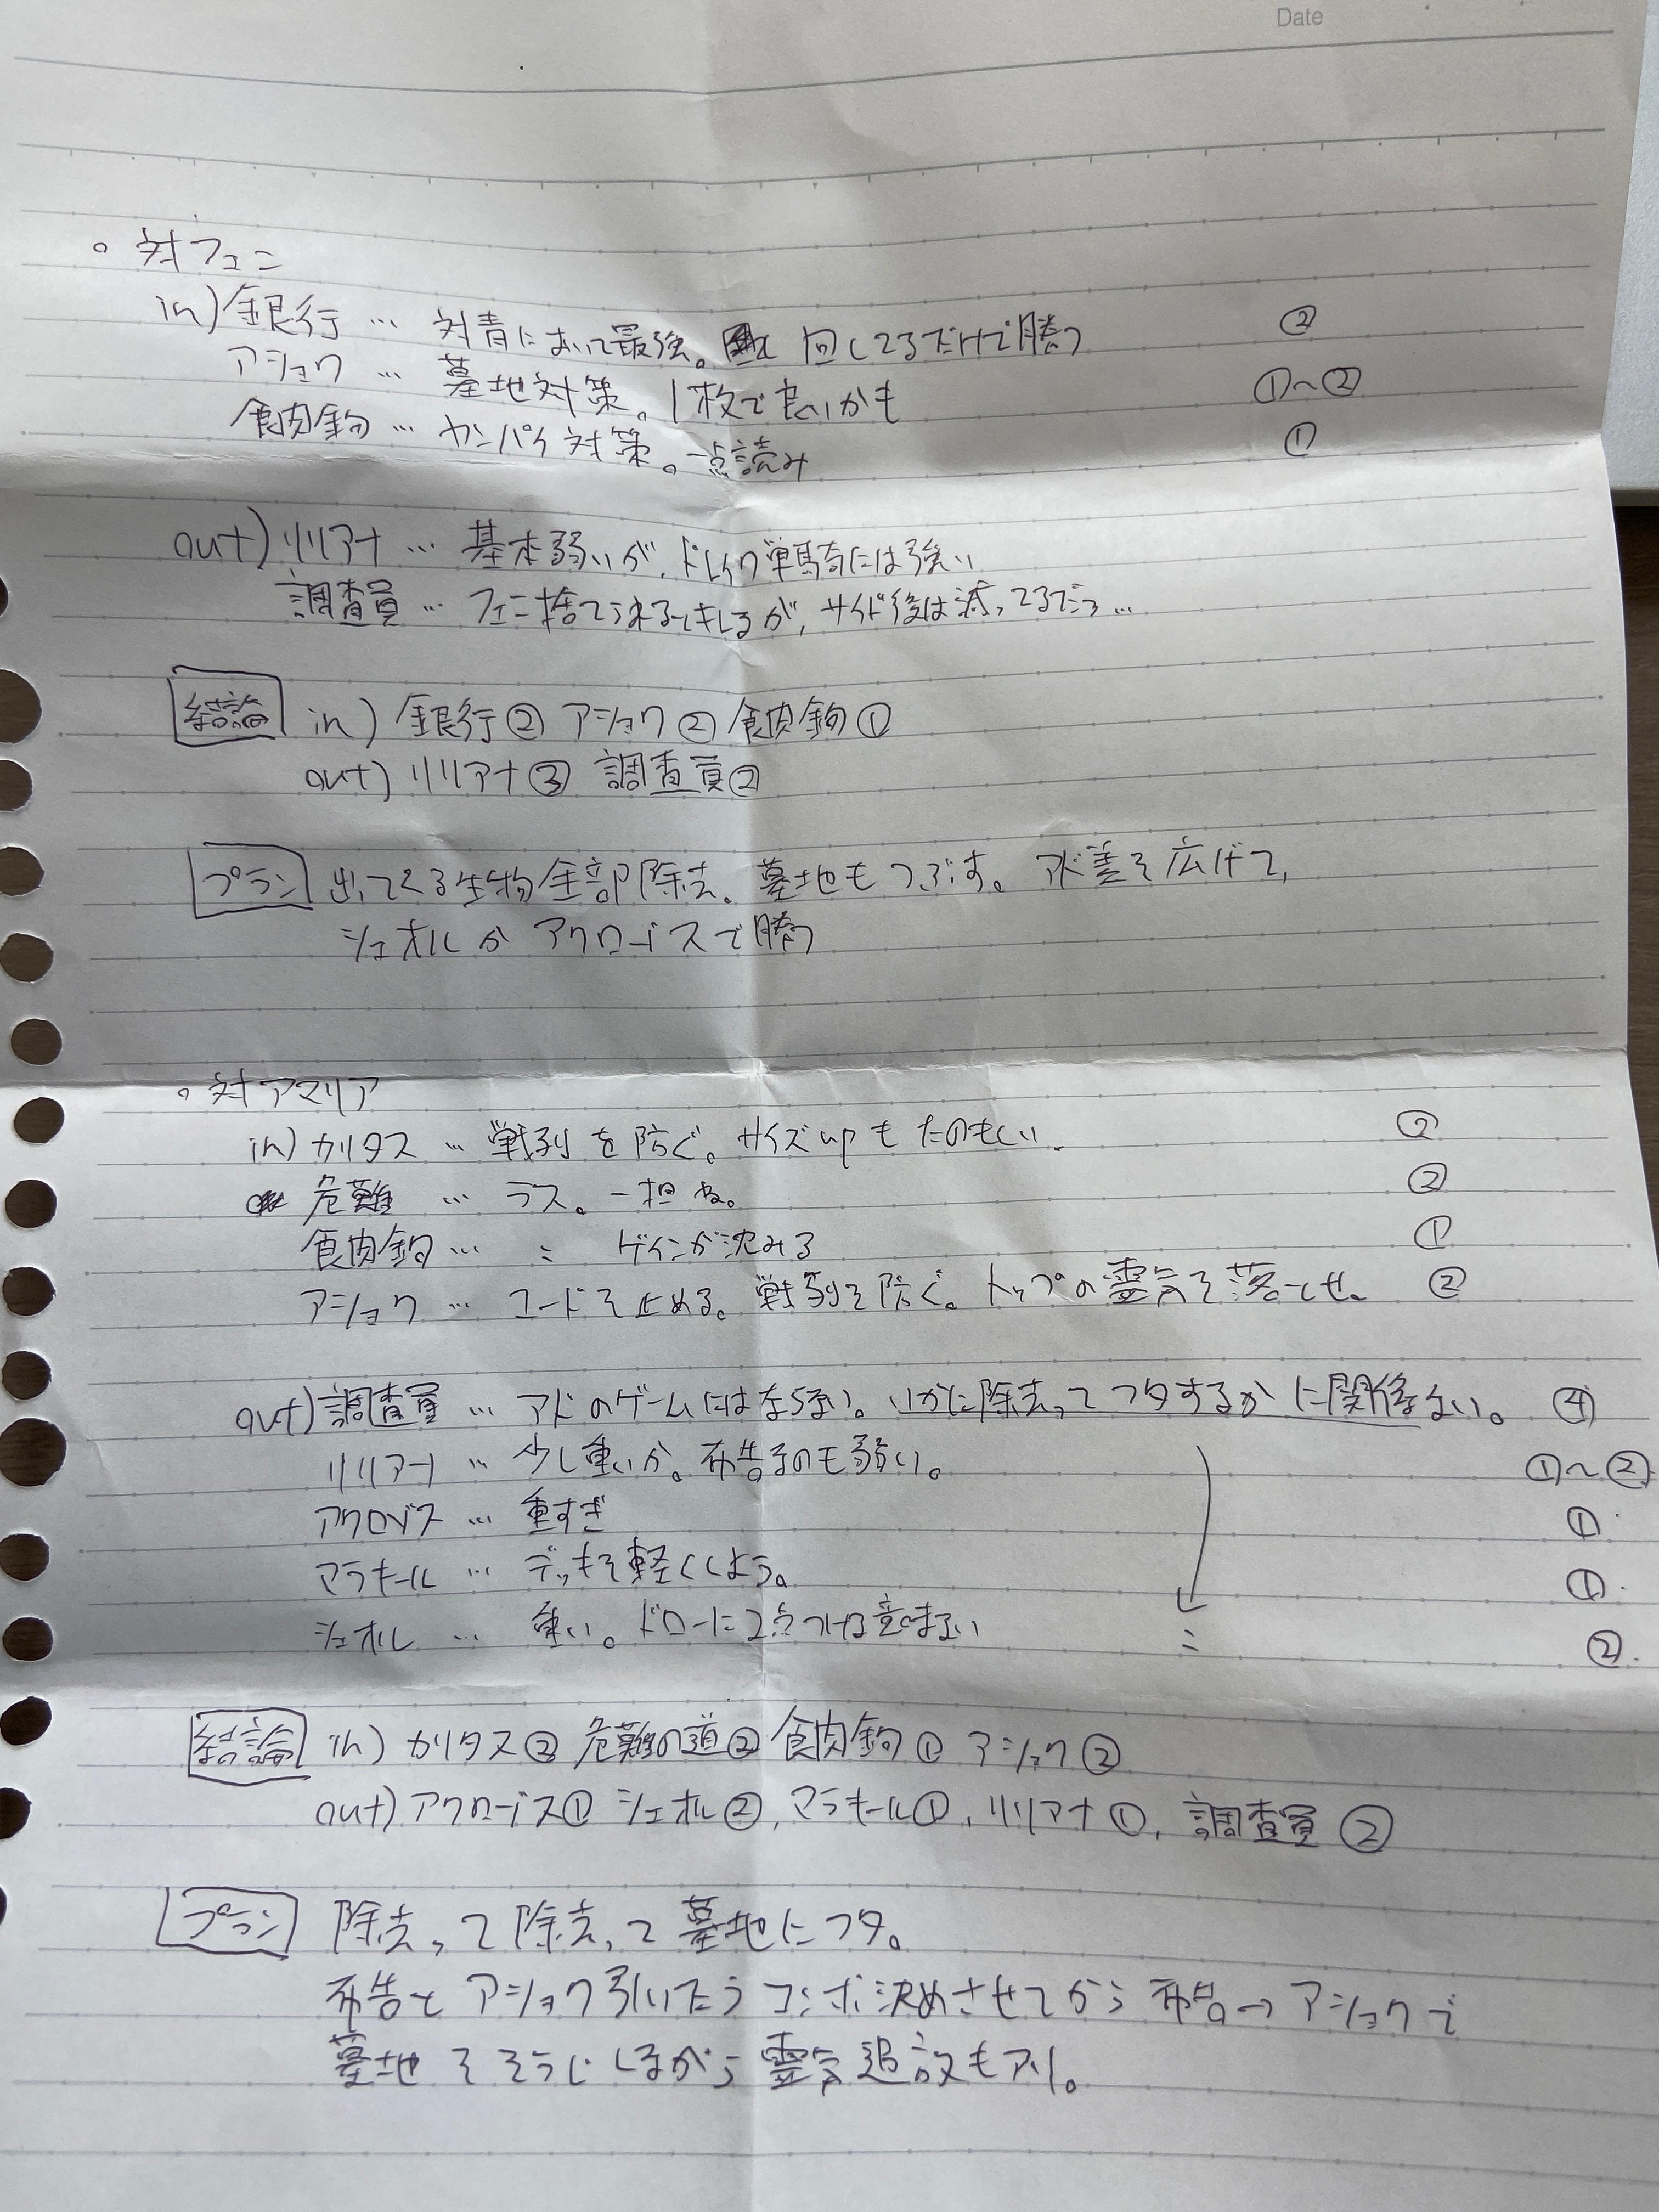 Date
○ 対フェニ
in) 銀行 … 対青において最強。 回してるだけで勝つ ②
アショク … 墓地対策。1枚で良いかも ①〜②
食肉鉤 … カンパイ対策。一点読み ①
out) リリアナ … 基本弱いが、ドレイク単騎には強い
調査員 … フェニ捨てられるしキレるが、サイド後は減ってるだろ…
結論 in) 銀行② アショク② 食肉鉤①
out) リリアナ③ 調査員②
プラン 出てくる生物全部除去。墓地もつぶす。アド差を広げて、
シェオルかアクロゾズで勝つ
○ 対アマリア
in) カリタス … 戦列を防ぐ。サイズupもたのもしい ②
危難 … ラス。一担ね。 ②
食肉鉤 … 〃 ゲインが沈みる ①
アショク … コードを止める。戦列を防ぐ。トップの霊気を落とせ。 ②
out) 調査員 … アドのゲームにはならない。いかに除去ってフタするかに関係ない。 ④
リリアナ … 少し重いか。布告そのも弱い。 ①〜②
アクロゾズ … 重すぎ ①
マラキール … デッキを軽くしよう。 ①
シェオル … 重い。ドローに2点つける意味ない 〃 ②
結論 in) カリタス② 危難の道② 食肉鉤① アショク②
out) アクロゾズ① シェオル②, マラキール①, リリアナ①, 調査員②
プラン 除去って除去って墓地にフタ。
布告とアショク引いたらコンボ決めさせてから布告→アショクで
墓地をそうじしながら霊気追放もアリ。